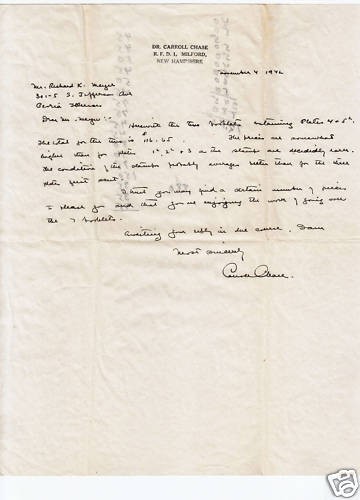 DR. CARROLL CHASE
R. F. D. 1, MILFORD,
NEW HAMPSHIRE
November 4 1942
Mr. Richard K. Meyer
301-5 S. Jefferson Ave
Peoria Illinois
Dear Mr. Meyer:-
Herewith the two booklets containing Plates 4 + 5
The total for the two is $ The prices are somewhat
higher than for plates 1 2 + 3 as the stamps are decidedly rarer.
The condition of the stamps probably averages better than for the three
plates first sent.
I trust you may find a certain number of pieces
to please you and that you are enjoying the work of going over
the booklets.
Awaiting your reply in due course, I am
Most sincerely
Carroll Chase.
ebY